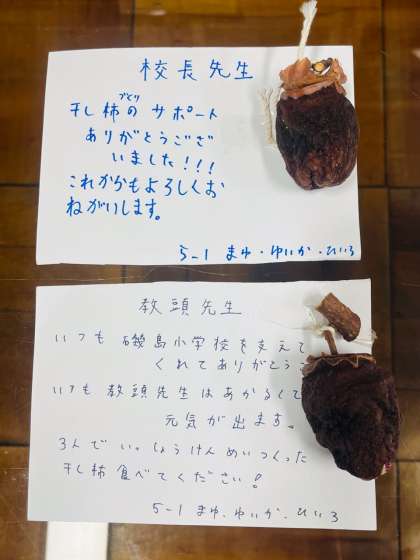 校長先生
干し柿づくりのサポート
ありがとうござ
いました!!!
これからもよろしくお
ねがいします。
5-1 まゆ・ゆいか・ひいろ
教頭先生
いつも 磯島小学校を支えて
くれてありがとう
いつも 教頭先生はあかるくて
元気が出ます。
3人でいっしょうけんめいつくった
干し柿食べてください!
5-1 まゆ・ゆいか・ひいろ